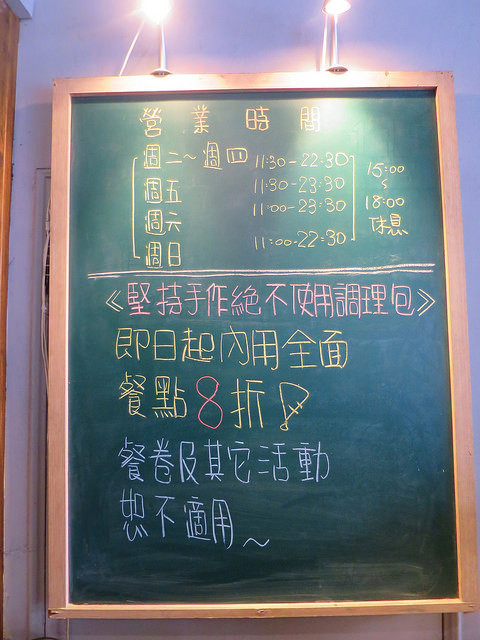 營業時間
週二~週四 11:30-22:30
週五 11:30-23:30
週六 11:00-23:30
週日 11:00-22:30
15:00
~
18:00
休息
《堅持手作絕不使用調理包》
即日起內用全面
餐點8折!
餐卷及其它活動
恕不適用~